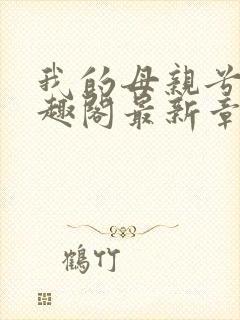 我的母親
趣閣最新章
鶴竹